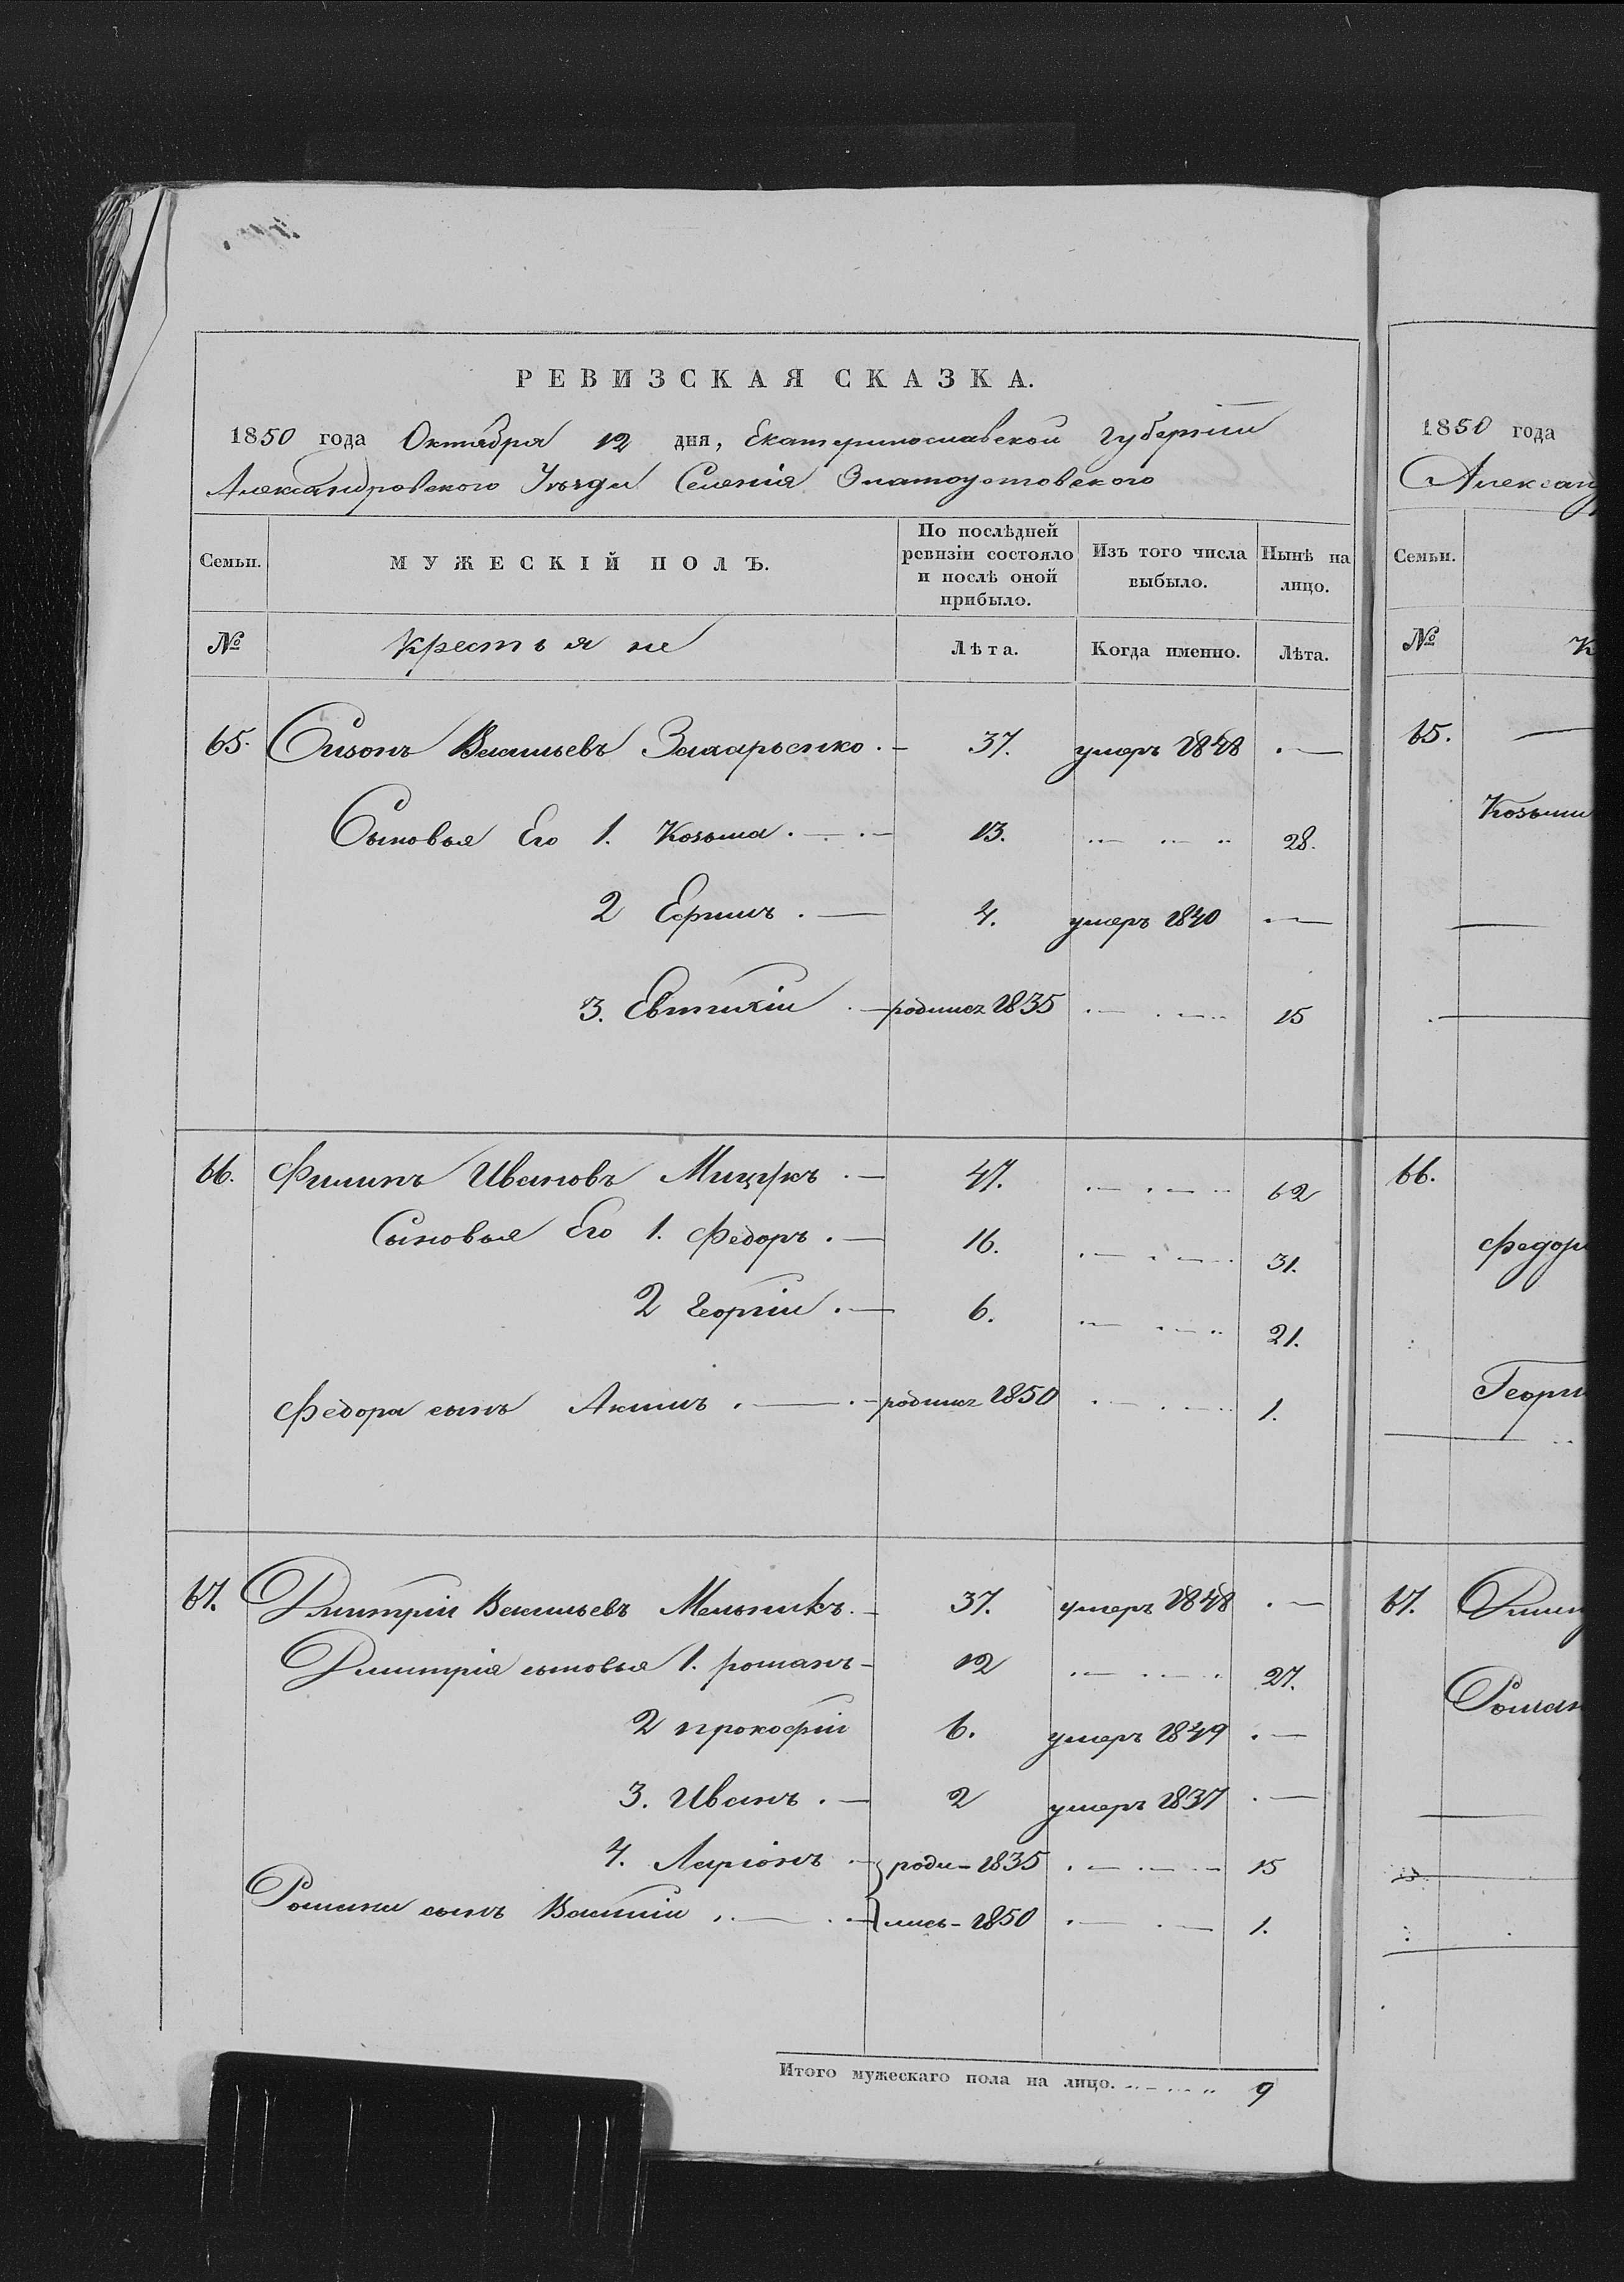 РЕВИЗСКАЯ СКАЗКА.
1850 года Октября 12 дня, Екатеринославской Губерніи
Александровскаго Уѣзда Селенія Златоустовского
Семьи. МУЖЕСКІЙ ПОЛЪ. По послѣдней ревизіи состояло и послѣ оной прибыло. Изъ того числа выбыло. Нынѣ на лицо.
№ Крестьяне Лѣта. Когда именно. Лѣта.
65. Сизонъ Васильевъ Захарьенко 37. умеръ 1848
Сыновья Его 1. Козьма 13. 28.
2 Ефимъ 4. умеръ 1840
3. Евтихіи родился 1835 15
66. Филипъ Ивановъ 47. 62
Сыновья Его 1. Федоръ 16. 31.
2 Георгіи 6. 21.
Федора сынъ Акимъ родился 1850 1.
67. Дмитріи Васильевъ Мельникъ 37. умеръ 1848
Дмитрія сыновья 1. романъ 12 27.
2 прокофіи 6. умеръ 1849
3. Иванъ 2 умеръ 1837
4. Ларіонъ роди- 1835 15
Романа сынъ Василіи лись- 1850 1.
Итого мужескаго пола на лицо. 9
1850 года
Александ
Семьи.
№ К
65.
Козьми
66.
Федора
Георги
67. Дмит
Роман